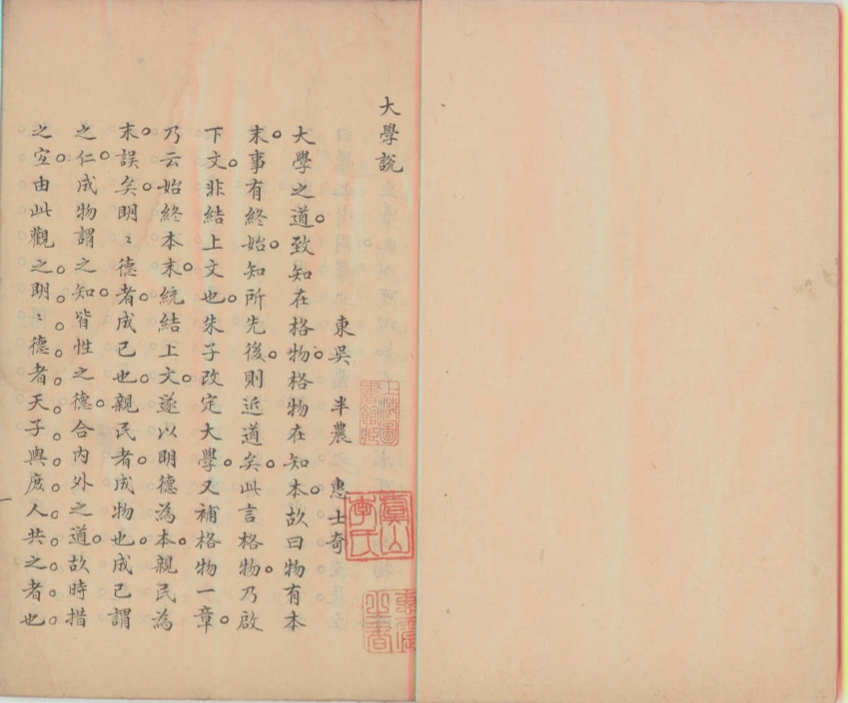 大學說
東吳半農惠士奇
大學之道。致知在格物。格物在知本。故曰物有本
末。事有終始。知所先後。則近道矣。此言格物。乃啟
下文。非結上文也。朱子改定大學。又補格物一章。
乃云始終本末。統結上文。遂以明德為本。親民為
末。誤矣。明〻德者。成己也。親民者。成物也。成己謂
之仁。成物謂之知。皆性之德。合內外之道。故時措
之宜。由此觀之。明〻德者天子與庶人共之者也。
虞山李氏